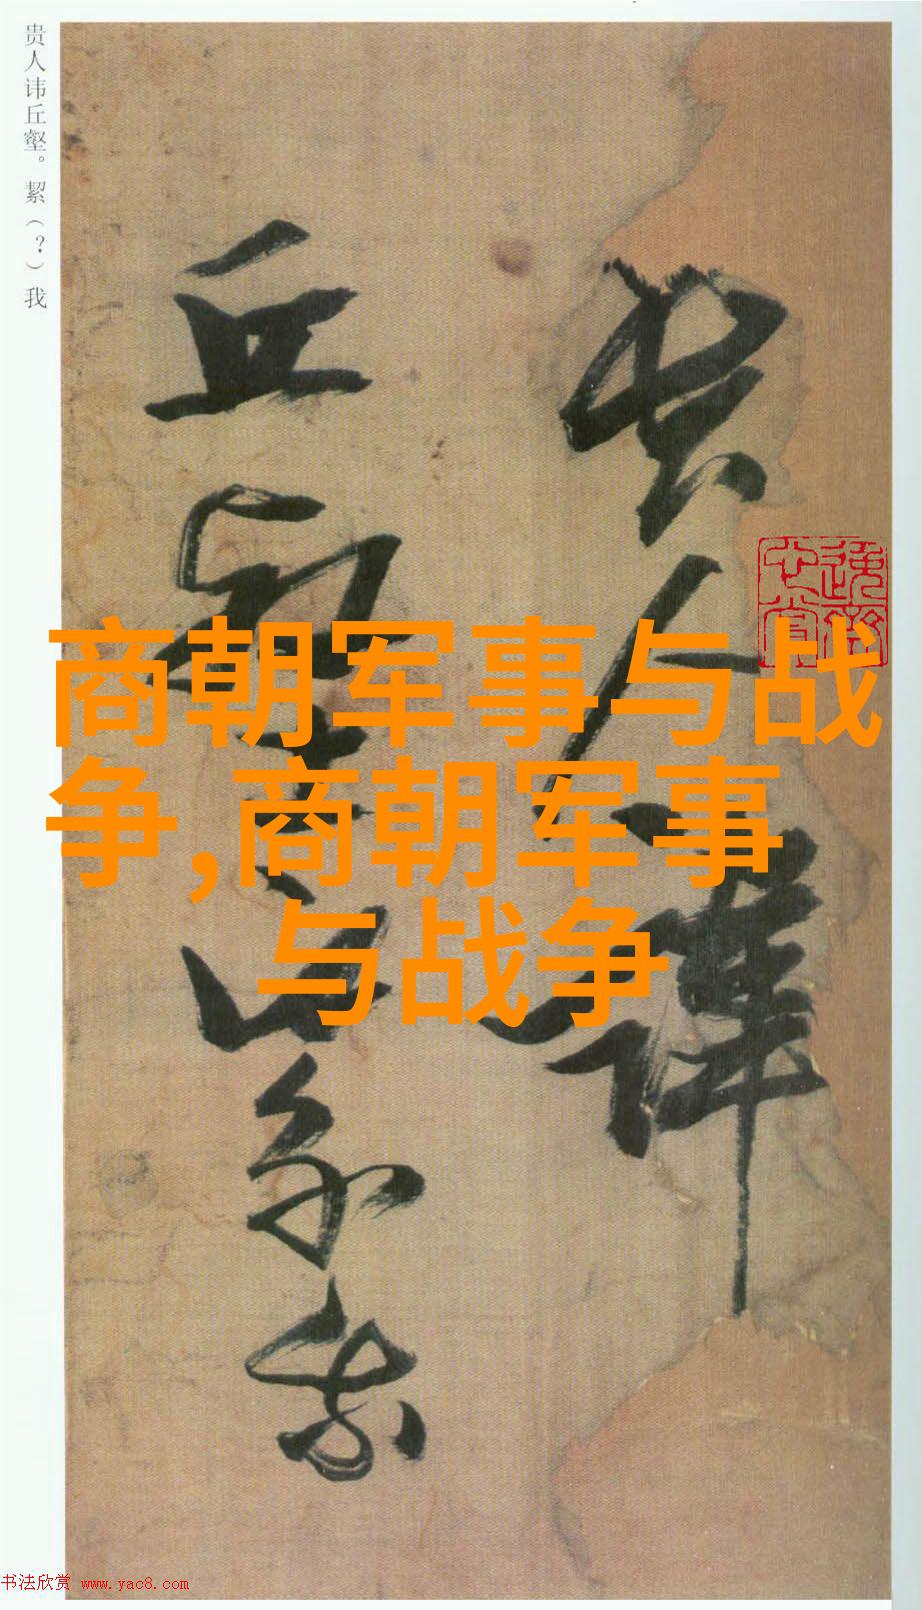 贵人讳丘壑。絜（？）我
贵人讳
丘壑
絜我
商朝军事与战
争,商朝军事
与战争
书法欣赏 www.yac8.com